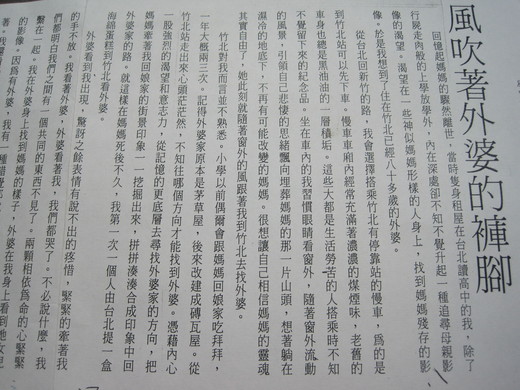 風吹著外婆的褲腳
回憶起媽媽的驟然離世，當時隻身租屋在台北讀高中的我，除了
行屍走肉般的上學放學外，內在深處卻不知不覺升起一種追尋母親影
像的渴望，渴望在一些神似媽媽形樣的人身上，找到媽媽殘存的影
像。於是我想到了住在竹北已經八十多歲的外婆。
從台北回新竹的路，我會選擇搭乘竹北有停靠站的慢車，為的是
到竹北站可以先下車。慢車車廂內經常充滿著濃濃的煤煙味，老舊的
車身也總是黑油油的一層積垢。這些大都是生活勞苦的人搭乘時不知
不覺留下來的紀念品。坐在車內的我習慣眼睛看窗外，隨著窗外流動
的風景，引領自己悲悽的思緒飄向埋葬媽媽的那一片山頭，想著躺在
濕冷的地底下，不再有可能改變的媽媽。很想讓自己相信媽媽的靈魂
其實自由了，她此刻就隨著窗外的風跟著我到竹北去找外婆。
竹北對我而言並不熟悉。小學以前偶爾會跟媽媽回娘家吃拜拜，
一年大概兩三次。記得外婆家原本是茅草屋，後來改建成磚瓦屋。從
竹北站走出來心頭茫茫然，不知往哪個方向才能找到外婆。憑藉內心
一股強烈的渴望和意志力，從記憶的更底層去尋找外婆家的方向，把
媽媽牽著我回娘家的街景印象一一挖掘出來，拼拼湊湊合成印象中回
外婆家的路。就這樣在媽媽死後不久，我第一次一個人由台北提一盒
海綿蛋糕到竹北看外婆。
外婆看到我出現，驚訝之餘表情有說不出的疼惜，緊緊的牽著我
的手不放。我看著外婆，外婆看著我，我們都哭了。不必說什麼，我
們都明白我們之間有一個共同的東西不見了。兩顆相依為命的心緊緊
繫在一起。我在外婆身上找到媽媽的樣子，外婆在我身上看到她女兒
的影像。因為有外婆，我有一種